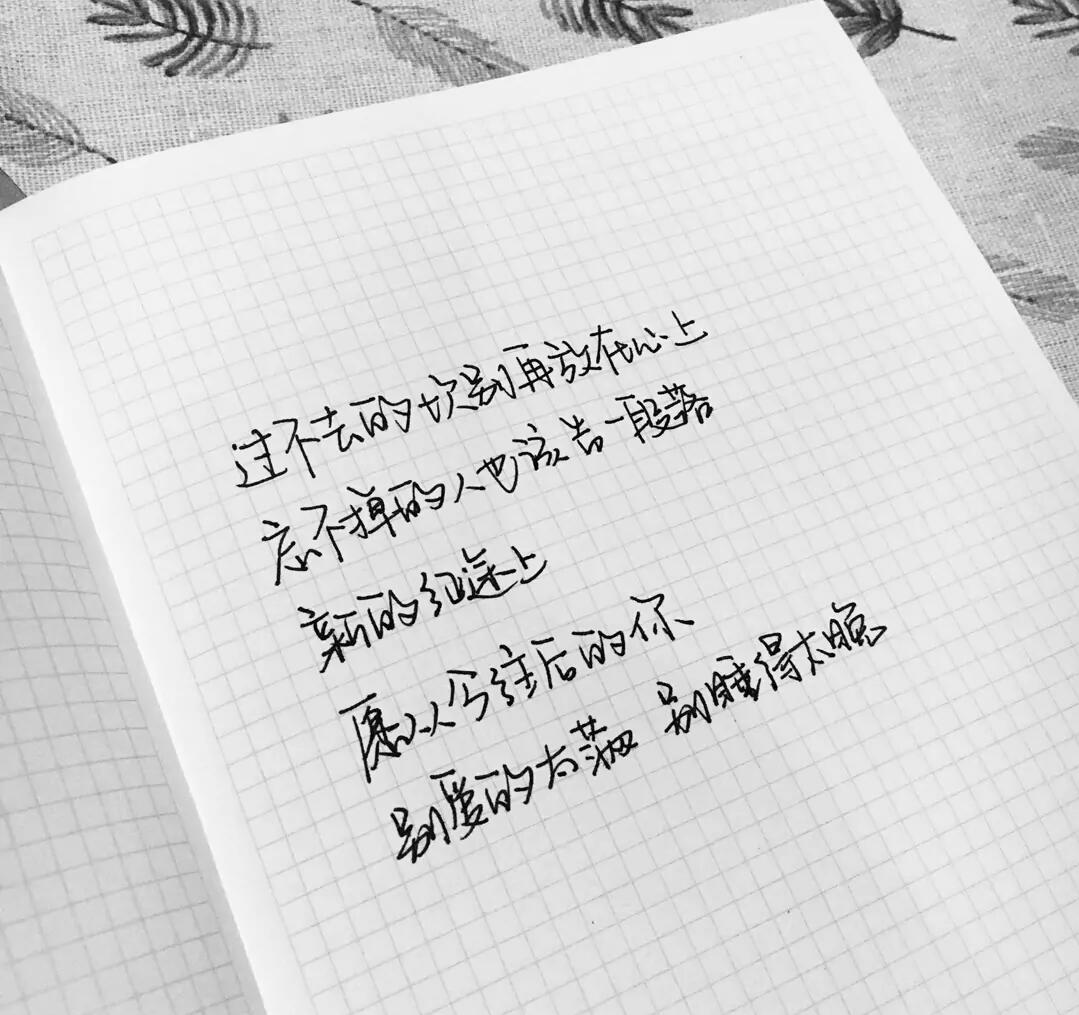 过不去的坎别再放在心上
忘不掉的人也该告一段落
新的征途上
愿以今往后的你
别爱的太满 别睡得太晚